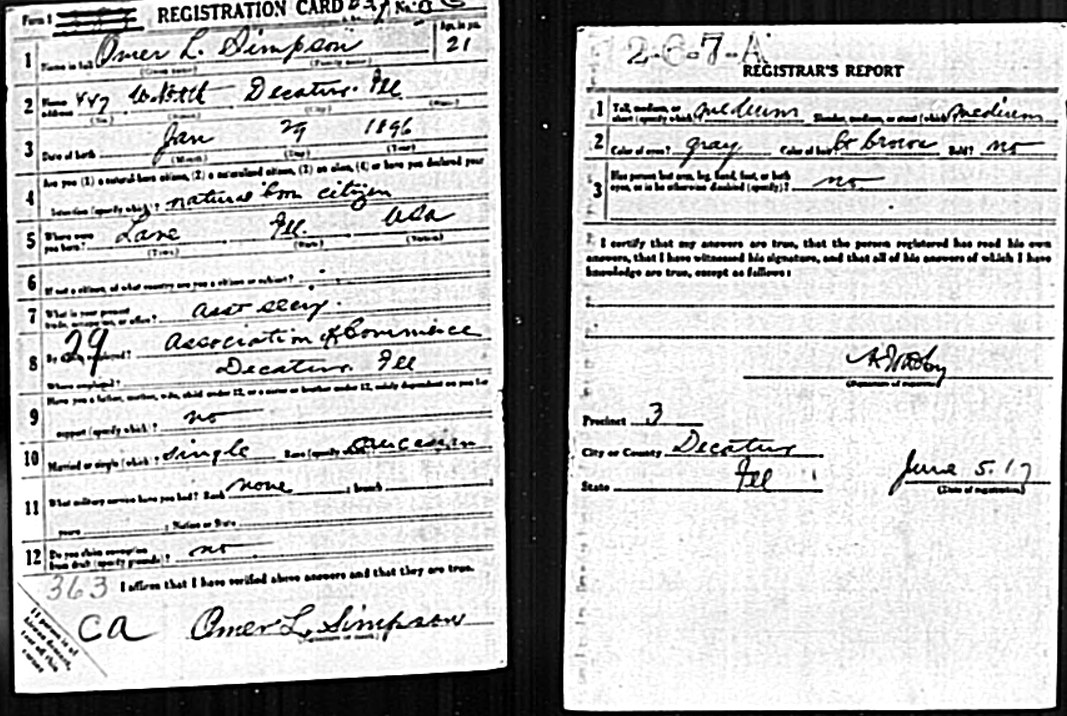 Form 1 REGISTRATION CARD No.
Age, in yrs.
1 Name in full Omer L. Simpson 21
(Given name) (Family name)
2 Home address 447 Decatur Ill
(No.) (Street) (City) (State)
3 Date of birth Jan 29 1896
(Month) (Day) (Year)
4 Are you (1) a natural-born citizen, (2) a naturalized citizen, (3) an alien, (4) or have you declared your
intention (specify which)? natural born citizen
5 Where were you born? Lane Ill. USA
(Town) (State) (Nation)
6 If not a citizen, of what country are you a citizen or subject?
7 What is your present trade, occupation, or office? asst secy.
29
8 By whom employed? Association of Commerce
Where employed? Decatur Ill
9 Have you a father, mother, wife, child under 12, or a sister or brother under 12, solely dependent on you for
support (specify which)? no
10 Married or single (which)? single Race (specify which)? Caucasian
11 What military service have you had? Rank none ; branch ;
years ; Nation or State
12 Do you claim exemption from draft (specify grounds)? no
363 I affirm that I have verified above answers and that they are true.
Ca Omer L. Simpson
If person is of African descent, tear off this corner
2-6-7-A
REGISTRAR'S REPORT
1 Tall, medium, or short (specify which)? medium Slender, medium, or stout (which)? medium
2 Color of eyes? gray Color of hair? brown Bald? no
3 Has person lost arm, leg, hand, foot, or both eyes, or is he otherwise disabled (specify)? no
I certify that my answers are true, that the person registered has read his own
answers, that I have witnessed his signature, and that all of his answers of which I have
knowledge are true, except as follows:
(Signature of registrar)
Precinct 3
City or County Decatur
State Ill
June 5. 17
(Date of registration)